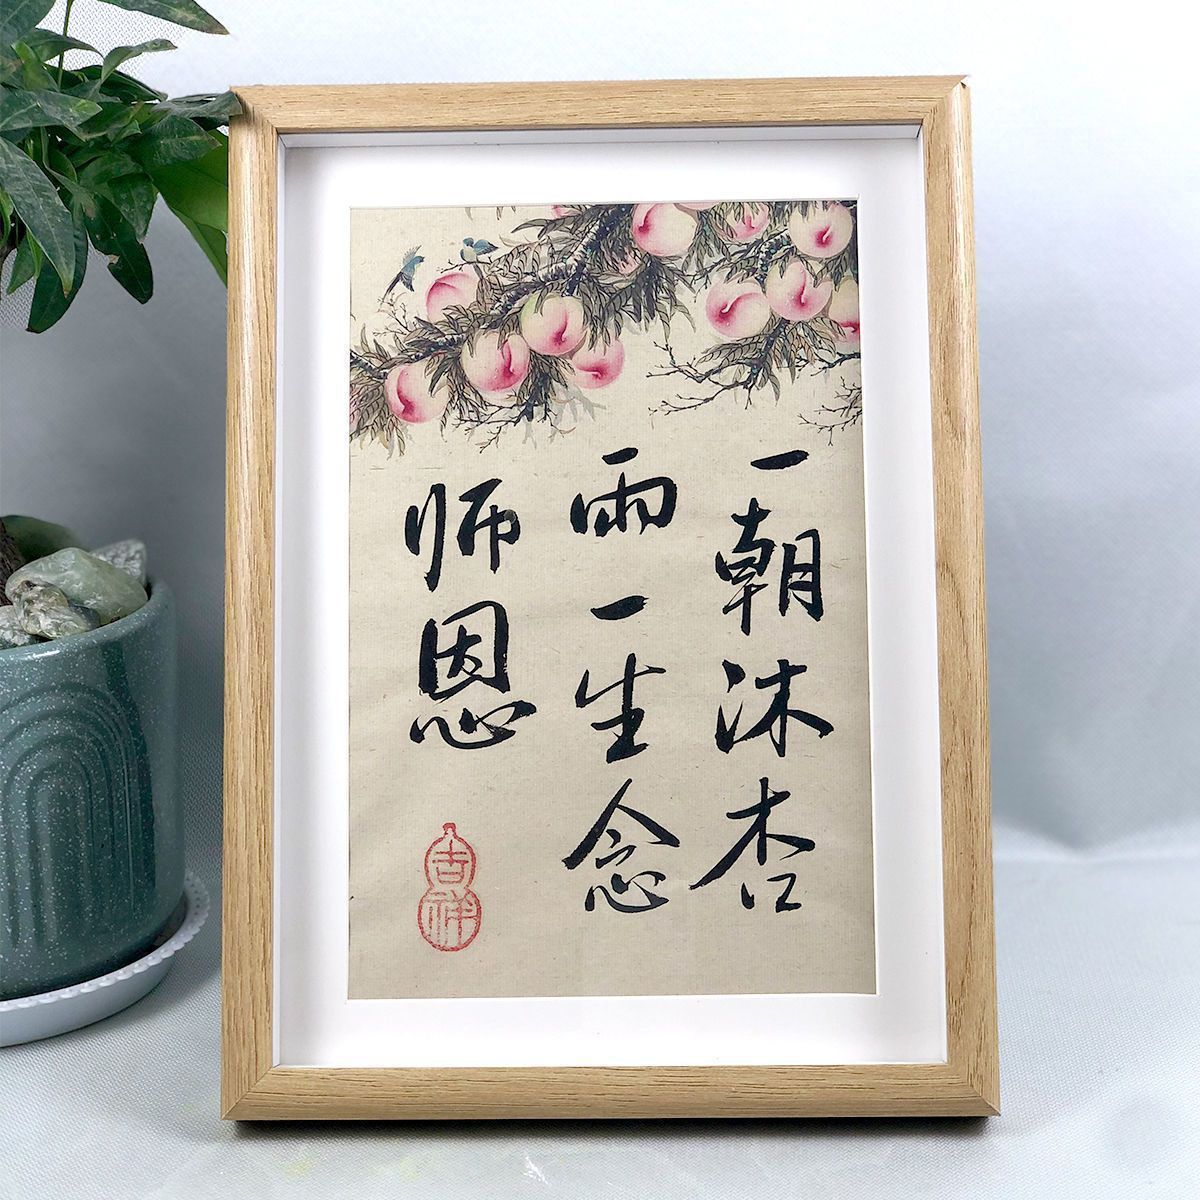 一朝沐杏
雨一生念
师恩
吉祥